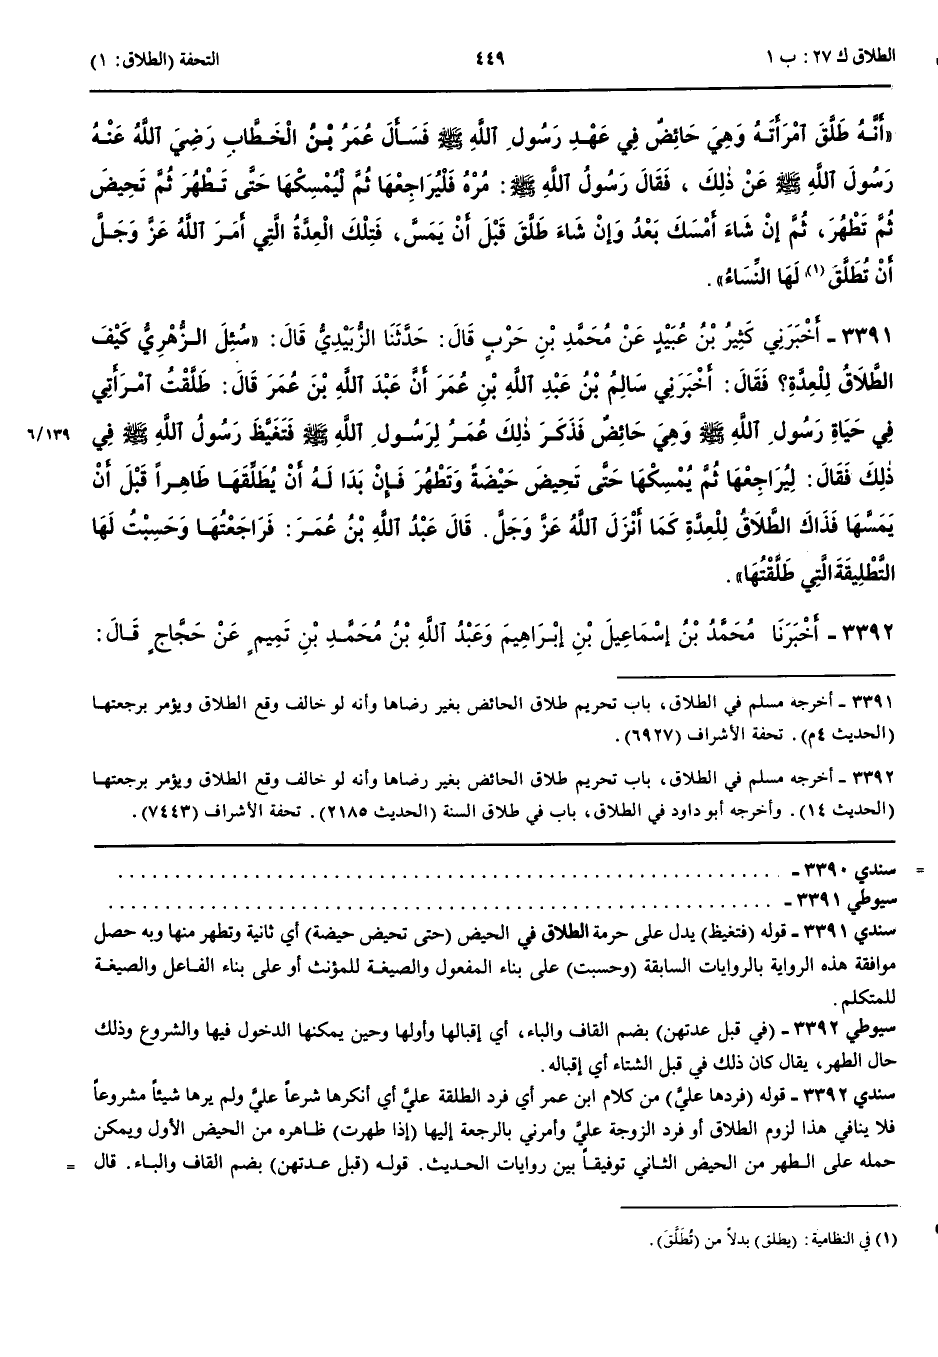 الطلاق ك ٢٧ : ب ١
٤٤٩
التحفة (الطلاق: ١)
«أَنَّهُ طَلَّقَ ٱمْرَأَتَهُ وَهِيَ حَائِضٌ فِي عَهْدِ رَسُولِ ٱللَّهِ ﷺ فَسَأَلَ عُمَرُ بْنُ الْخَطَّابِ رَضِيَ ٱللَّهُ عَنْهُ
رَسُولَ ٱللَّهِ ﷺ عَنْ ذٰلِكَ ، فَقَالَ رَسُولُ ٱللَّهِ ﷺ : مُرْهُ فَلْيُرَاجِعْهَا ثُمَّ لْيُمْسِكْهَا حَتَّى تَطْهُرَ ثُمَّ تَحِيضَ
ثُمَّ تَطْهُرَ، ثُمَّ إِنْ شَاءَ أَمْسَكَ بَعْدُ وَإِنْ شَاءَ طَلَّقَ قَبْلَ أَنْ يَمَسَّ، فَتِلْكَ الْعِدَّةُ الَّتِي أَمَرَ ٱللَّهُ عَزَّ وَجَلَّ
أَنْ تُطَلَّقَ (١) لَهَا النِّسَاءُ» .
٣٣٩١ - أَخْبَرَنِي كَثِيرُ بْنُ عُبَيْدٍ عَنْ مُحَمَّدِ بْنِ حَرْبٍ قَالَ: حَدَّثَنَا الزُّبَيْدِيُّ قَالَ: «سُئِلَ الزُّهْرِيُّ كَيْفَ
الطَّلَاقُ لِلْعِدَّةِ؟ فَقَالَ: أَخْبَرَنِي سَالِمُ بْنُ عَبْدِ اللَّهِ بْنِ عُمَرَ أَنَّ عَبْدَ اللَّهِ بْنَ عُمَرَ قَالَ: طَلَّقْتُ ٱمْرَأَتِي
فِي حَيَاةِ رَسُولِ ٱللَّهِ ﷺ وَهِيَ حَائِضٌ فَذَكَرَ ذٰلِكَ عُمَرُ لِرَسُولِ ٱللَّهِ ﷺ فَتَغَيَّظَ رَسُولُ ٱللَّهِ ﷺ فِي
٦/١٣٩
ذٰلِكَ فَقَالَ: لِيُرَاجِعْهَا ثُمَّ يُمْسِكْهَا حَتَّى تَحِيضَ حَيْضَةً وَتَطْهُرَ فَإِنْ بَدَا لَهُ أَنْ يُطَلِّقَهَا طَاهِراً قَبْلَ أَنْ
يَمَسَّهَا فَذَاكَ الطَّلَاقُ لِلْعِدَّةِ كَمَا أَنْزَلَ اللَّهُ عَزَّ وَجَلَّ. قَالَ عَبْدُ اللَّهِ بْنُ عُمَرَ: فَرَاجَعْتُهَا وَحَسِبْتُ لَهَا
التَّطْلِيقَةَ الَّتِي طَلَّقْتُهَا» .
٣٣٩٢ - أَخْبَرَنَا مُحَمَّدُ بْنُ إِسْمَاعِيلَ بْنِ إِبْرَاهِيمَ وَعَبْدُ اللَّهِ بْنُ مُحَمَّدِ بْنِ تَمِيمٍ عَنْ حَجَّاجٍ قَالَ:
٣٣٩١ - أخرجه مسلم في الطلاق، باب تحريم طلاق الحائض بغير رضاها وأنه لو خالف وقع الطلاق ويؤمر برجعتها
(الحديث ٤م). تحفة الأشراف (٦٩٢٧).
٣٣٩٢ - أخرجه مسلم في الطلاق، باب تحريم طلاق الحائض بغير رضاها وأنه لو خالف وقع الطلاق ويؤمر برجعتها
(الحديث ١٤). وأخرجه أبو داود في الطلاق، باب في طلاق السنة (الحديث ٢١٨٥). تحفة الأشراف (٧٤٤٣).
سندي ٣٣٩٠ - . . . . . . . . . . . . . . . . . . . . =
سيوطي ٣٣٩١ - . . . . . . . . . . . . . . . . . . . .
سندي ٣٣٩١ - قوله (فتغيظ) يدل على حرمة الطلاق في الحيض (حتى تحيض حيضة) أي ثانية وتطهر منها وبه حصل
موافقة هذه الرواية بالروايات السابقة (وحسبت) على بناء المفعول والصيغة للمؤنث أو على بناء الفاعل والصيغة
للمتكلم.
سيوطي ٣٣٩٢ - (في قبل عدتهن) بضم القاف والباء، أي إقبالها وأولها وحين يمكنها الدخول فيها والشروع وذلك
حال الطهر، يقال كان ذلك في قبل الشتاء أي إقباله.
سندي ٣٣٩٢ - قوله (فردها عليَّ) من كلام ابن عمر أي فرد الطلقة عليَّ أي أنكرها شرعاً عليَّ ولم يرها شيئاً مشروعاً
فلا ينافي هذا لزوم الطلاق أو فرد الزوجة عليَّ وأمرني بالرجعة إليها (إذا طهرت) ظاهره من الحيض الأول ويمكن
حمله على الطهر من الحيض الثاني توفيقاً بين روايات الحديث. قوله (قبل عدتهن) بضم القاف والباء. قال =
(١) في النظامية: (يطلق) بدلاً من (تُطَلَّقَ).